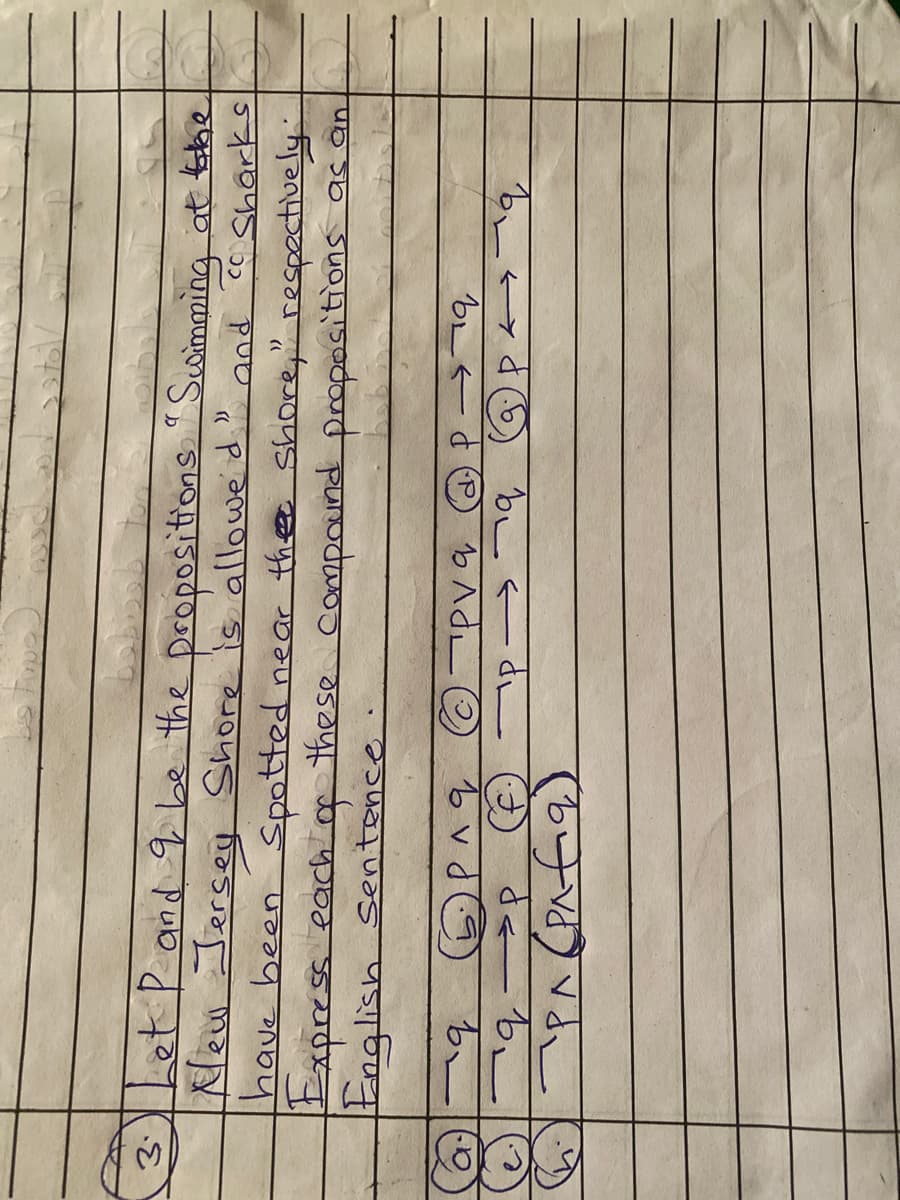 3. Let P and q be the propositions "Swimming at the
New Jersey Shore is allowed" and "Sharks
have been spotted near the shore," respectively.
Express each of these compound propositions as an
English sentence.
a. ¬q b. p ∧ q c. ¬p ∨ q d. p → ¬q
e. ¬q → p f. ¬p → ¬q g. p ↔ ¬q
h. ¬p ∧ (p ∨ ¬q)